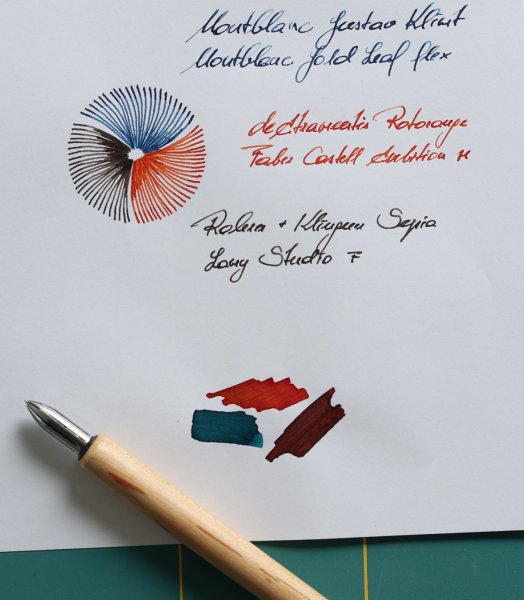 Montblanc Gustav Klimt
Montblanc Gold Leaf flex
deAtramentis Rotorange
Faber Castell Ambition M
Rohrer + Klingner Sepia
Lamy Studio F